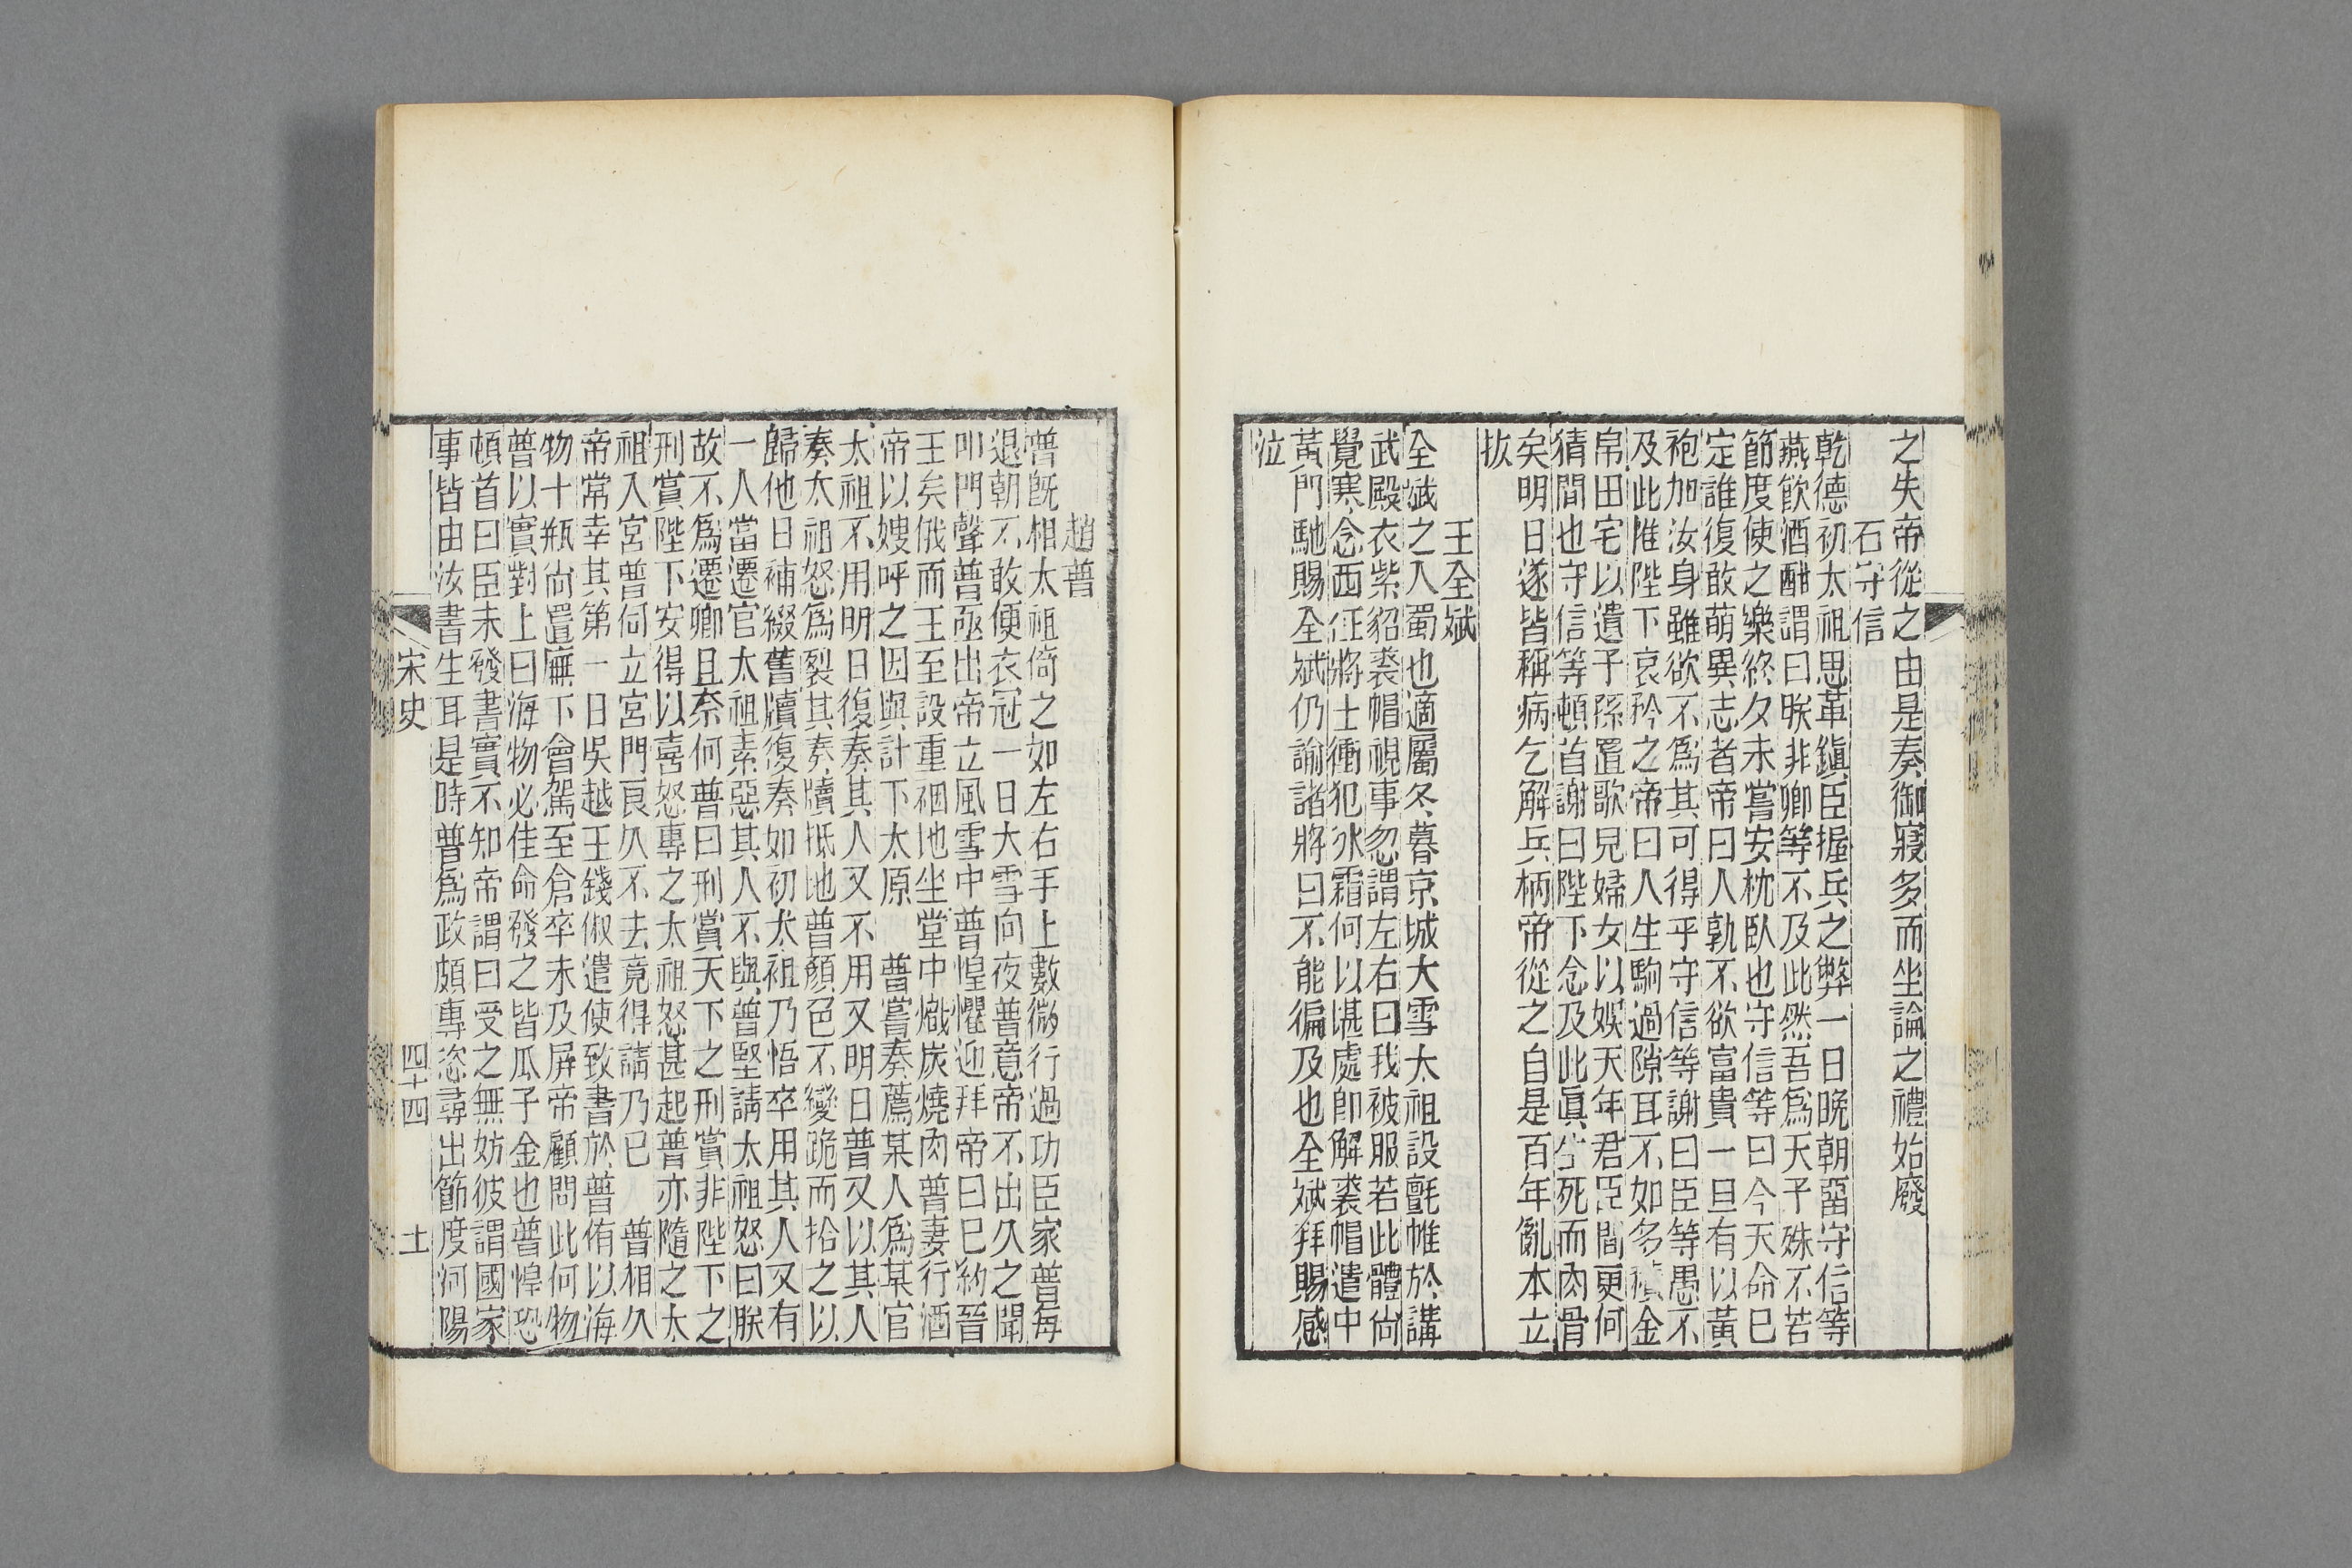 之失帝從之由是奏御寢多而坐論之禮始廢
石守信
乾德初太祖思革鎭臣握兵之弊一日晩朝畱守信等
燕飮酒酣謂曰朕非卿等不及此然吾爲天子殊不若
節度使之樂終夕未嘗安枕臥也守信等曰今天命已
定誰復敢萌異志者帝曰人孰不欲富貴一旦有以黃
袍加汝身雖欲不爲其可得乎守信等謝曰臣等愚不
及此惟陛下哀矜之帝曰人生駒過隙耳不如多積金
帛田宅以遺子孫置歌兒婦女以娛天年君臣間更何
猜間也守信等頓首謝曰陛下念及此眞生死而肉骨
矣明日遂皆稱病乞解兵柄帝從之自是百年亂本立
抜
王全斌
全斌之入蜀也適屬冬暮京城大雪太祖設氈帷於講
武殿衣紫貂裘帽視事忽謂左右曰我被服若此體尙
覺寒念西征將士衝犯氷霜何以堪處卽解裘帽遣中
黃門馳賜全斌仍諭諸將曰不能徧及也全斌拜賜感
泣
趙普
普旣相太祖倚之如左右手上數微行過功臣家普每
退朝不敢便衣冠一日大雪向夜普意帝不出久之聞
叩門聲普亟出帝立風雪中普惶懼迎拜帝曰已約晉
王矣俄而王至設重裀地坐堂中熾炭燒肉普妻行酒
帝以嫂呼之因與計下太原 普嘗奏薦某人爲某官
太祖不用明日復奏其人又不用又明日普又以其人
奏太祖怒爲裂其奏牘抵地普顏色不變跪而拾之以
歸他日補綴舊牘復奏如初太祖乃悟卒用其人又有
一人當遷官太祖素惡其人不與普堅請太祖怒曰朕
故不爲遷卿且奈何普曰刑賞天下之刑賞非陛下之
刑賞陛下安得以喜怒專之太祖怒甚起普亦隨之太
祖入宮普伺立宮門良久不去竟得請乃已 普相久
帝常幸其第一日吳越王錢俶遣使致書於普侑以海
物十瓶尙置廡下會駕至倉卒未及屏帝顧問此何物
普以實對上曰海物必佳命發之皆瓜子金也普惶恐
頓首曰臣未發書實不知帝謂曰受之無妨彼謂國家
事皆由汝書生耳是時普爲政頗專恣尋出節度河陽
宋史 四十四 十